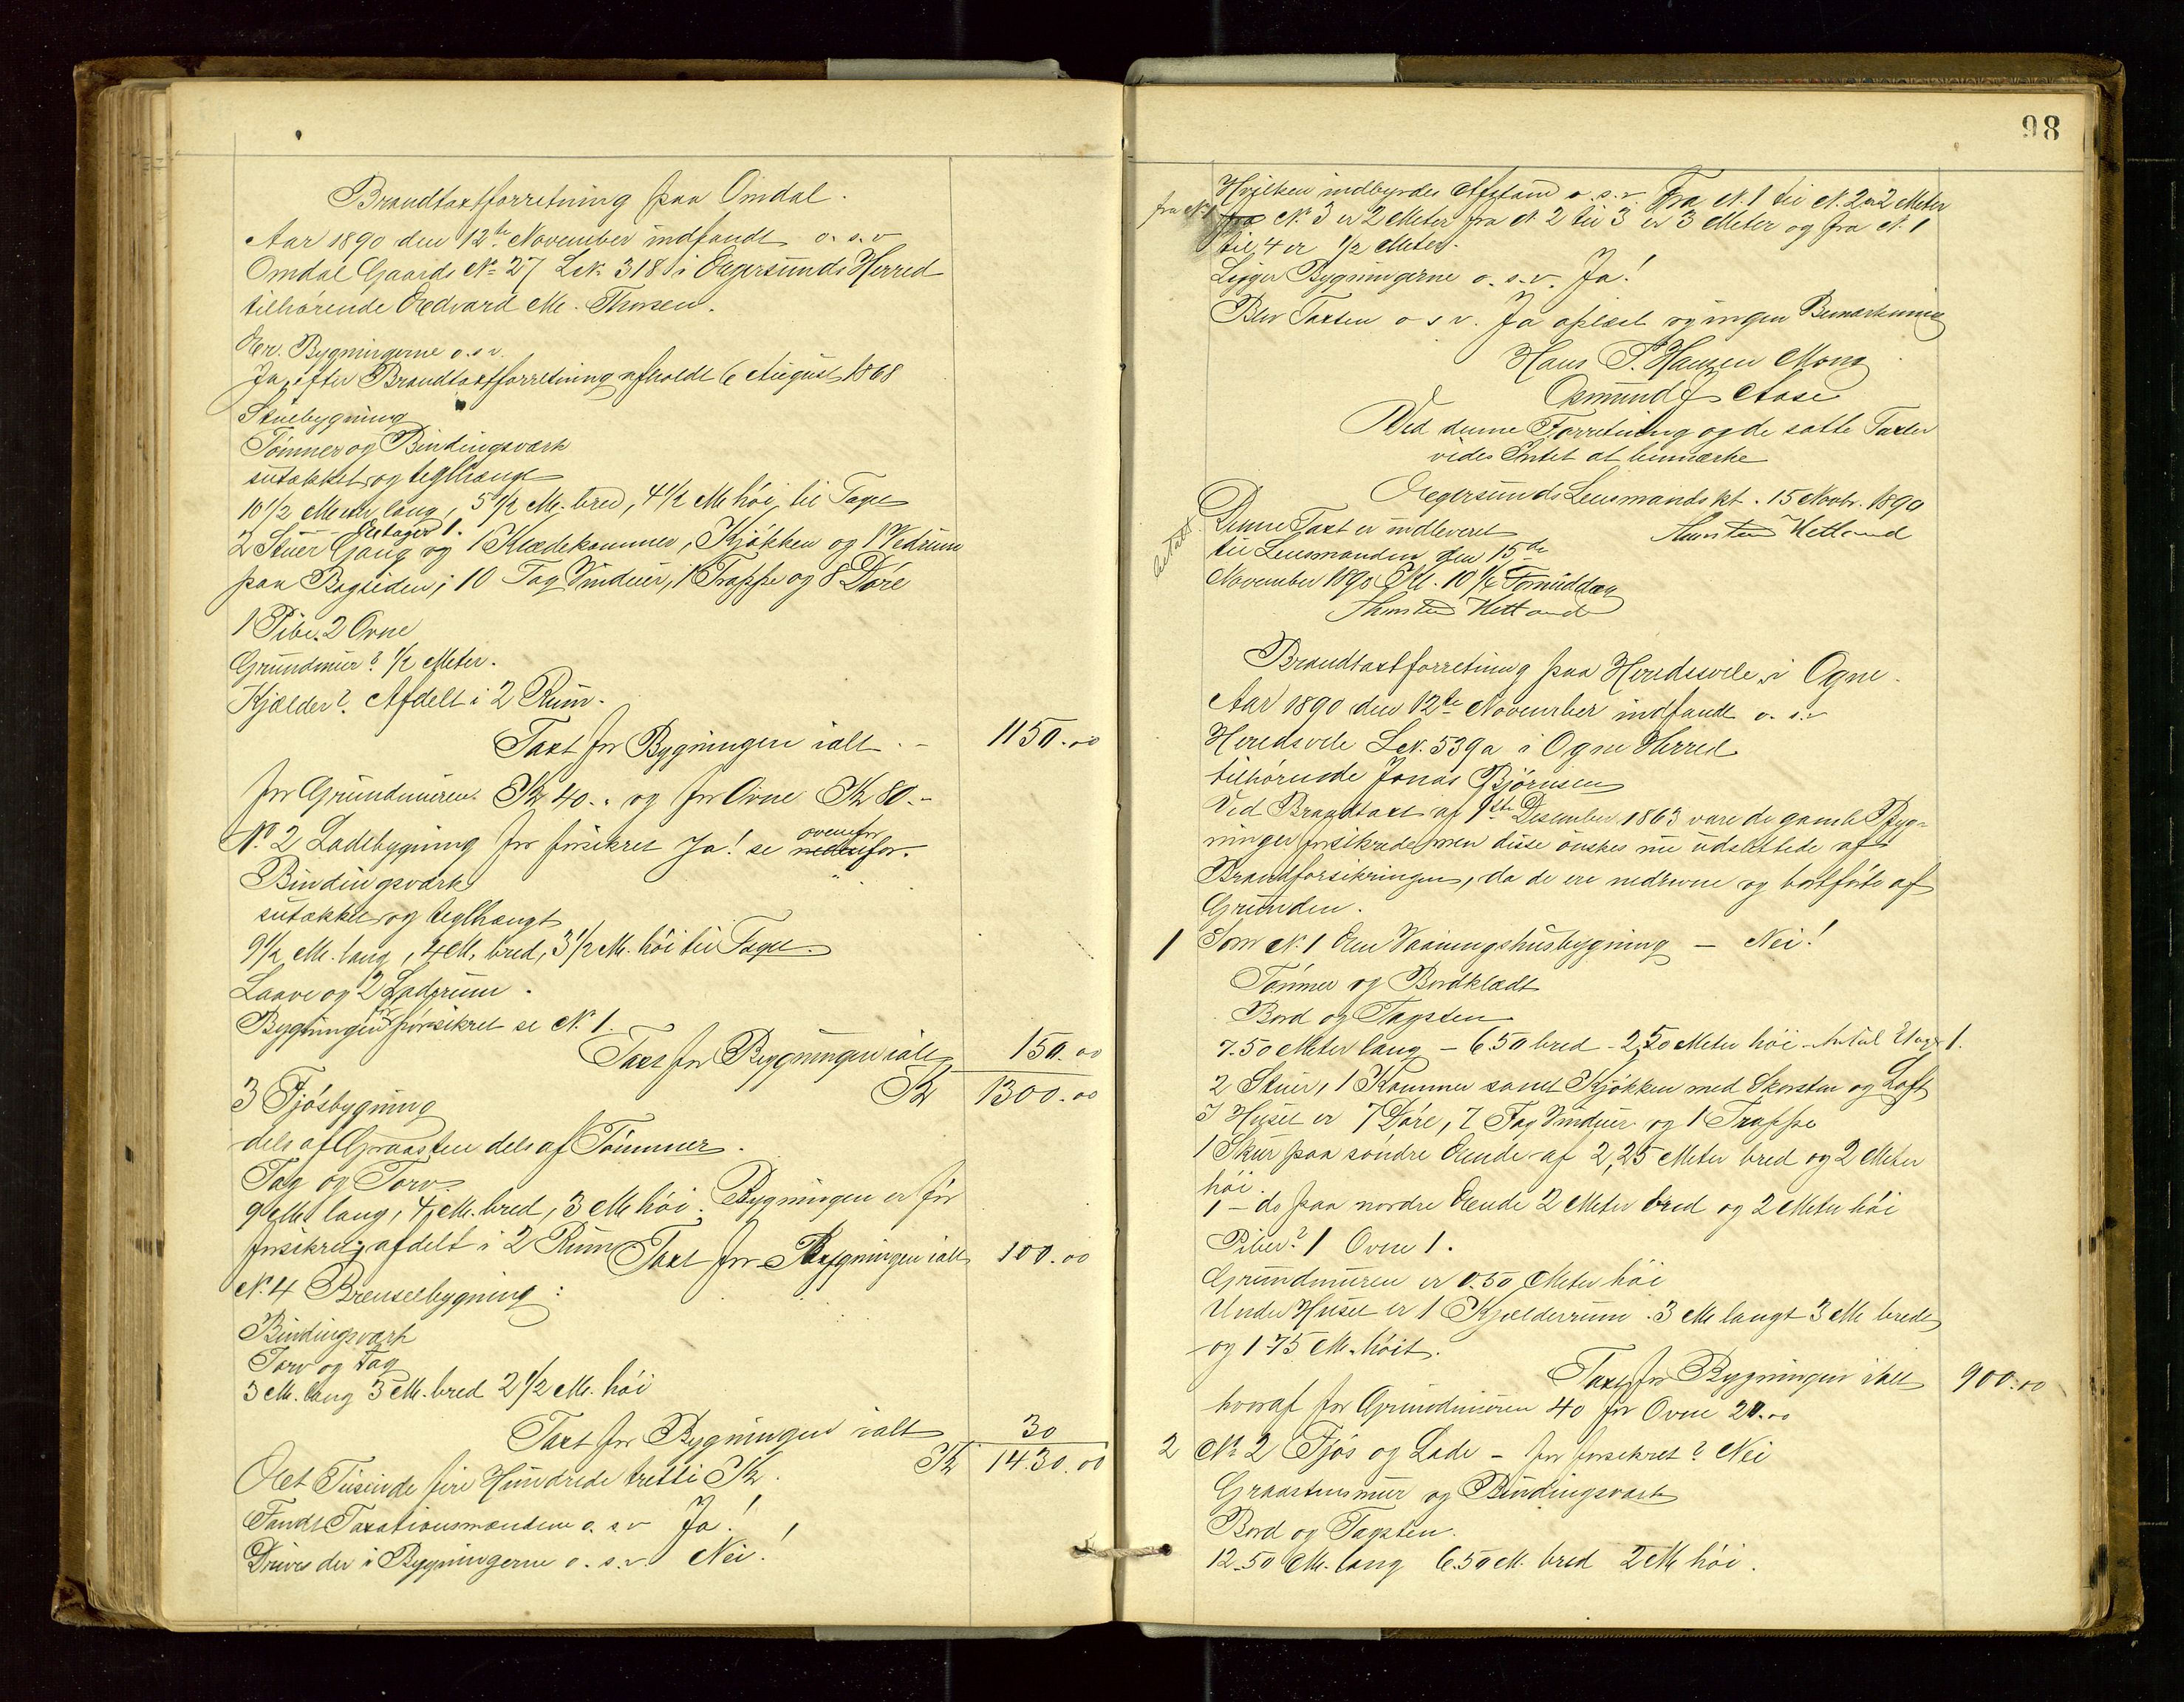 Brandtaxtforretning paa Omdal.
Aar 1890 den 12te November indfandt o. s. v
Omdal Gaards No 27 L.N. 318 i Egersunds Herred
tilhørende Edvard M. Thorsen.
Er. Bygningerne o. s v.
Ja, efter Brandtaxtforretning afholdt 6 August 1868
Stuebygning
Tømmer og Bindingsværk
sutækket og teglhængt
10 1/2 Meter lang, 5 1/2 M. bred, 4 1/2 M høi, til Taget
Etager 1.
2 Stuer Gang og 1 Klædekammer, Kjøkken og 1 Vedrum
paa Bagsiden; 10 Fag Vinduer, 1 Trappe og 8 Døre
1 Pibe. 2 Ovne
Grundmur? 1/2 Meter.
Kjælder? Afdelt i 2 Rum.
Taxt for Bygningen ialt . - 1150.00
for Grundmuren Kr 40.. og for Ovne Kr 80.-
No 2 Ladebygning før forsikret Ja! se nedenfor. ovenfor
Bindingsværk
sutækket og teglhængt
9 1/2 M. lang, 4 M. bred, 3 1/2 M. høi til Taget.
Laave og 2 Laderum.
Bygningen er forsikret se N. 1.
Taxt for Bygningen ialt 150.00
Kr 1300.00
3 Fjøsbygning
dels af Graasten dels af Tømmer.
Tag og Torv
9 M lang, 4 M. bred, 3 M høi. Bygningen er før
forsikret; afdelt i 2 Rum Taxt for Bygningen ialt 100.00
N. 4 Brenselbygning:
Bindingsværk
Torv og Tag
3 M. lang 3 M. bred 2 1/2 M. høi
Taxt for Bygningen ialt 30
Kr 1430.00
Et Tusinde fire Hundrede tretti Kr.
Fandt Taxationsmændene o. s v Ja!
Drives der i Bygningerne o. s. v. Nei!
98
Hvilken indbyrdes Afstand o. s. v. Fra N. 1 til N. 2 er 2 Meter
fra N. 1 N. 3 er 2 Meter fra N. 2 til 3 er 3 Meter og fra N. 1
til 4 er 1/2 Meter.
Ligger Bygningerne o. s. v. Ja!
Blev Taxten o s v. Ja oplæst og ingen Bemærkning
Hans P. Hansen Mong
Osmund J. Aase
Ved denne Forretning og de satte Taxter
vides Intet at bemærke
Egersunds Lensmandskt. 15 Novbr. 1890
Thorsten Hetland
Denne Taxt er indleveret
til Lensmanden den 15de
November 1890 Kl. 10 1/2 Formiddag
Thorsten Hetland
betalt
Brandtaxtforretning paa Heredsvele i Ogne.
Aar 1890 den 12te November indfandt o. s. v
Heredsvele L.N. 539a i Ogne Herred
tilhørende Jonas Bjørnsen
Ved Brandtaxt af 1ste Desember 1863 vare de gamle Byg-
ninger forsikrede, men disse ønskes nu udslettede af
Brandforsikringen, da de ere nedrevne og bortførte af
Grunden.
1 Som N. 1 Een Vaaningshusbygning - Nei!
Tømmer og Bordklædt
Bord og Tagsten
7.50 Meter lang - 6.50 bred - 2,50 Meter høi - Antal Etager 1.
2 Stuer, 1 Kammer samt Kjøkken med Skorsten og Loft
I Huset er 7 Døre, 7 Fag Vinduer og 1 Trappe
1 Skur paa søndre Ende af 2,25 Meter bred og 2 Meter
høi.
1 - do paa nordre Ende 2 Meter bred og 2 Meter høi
Piber? 1 Ovne 1.
Grundmuren er 0.50 Meter høi
Under Huset er 1 Kjælderrum. 3 M langt 3 M bredt
og 1.75 M. høit.
Taxt for Bygningen ialt 900.00
hvoraf for Grundmuren 40 for Ovne 20.00
2 No 2 Fjøs og Lade - før forsikret? Nei
Graastensmur og Bindingsværk
Bord og Tagsten.
12.50 M. lang 6.50 M. bred 2 M høi.